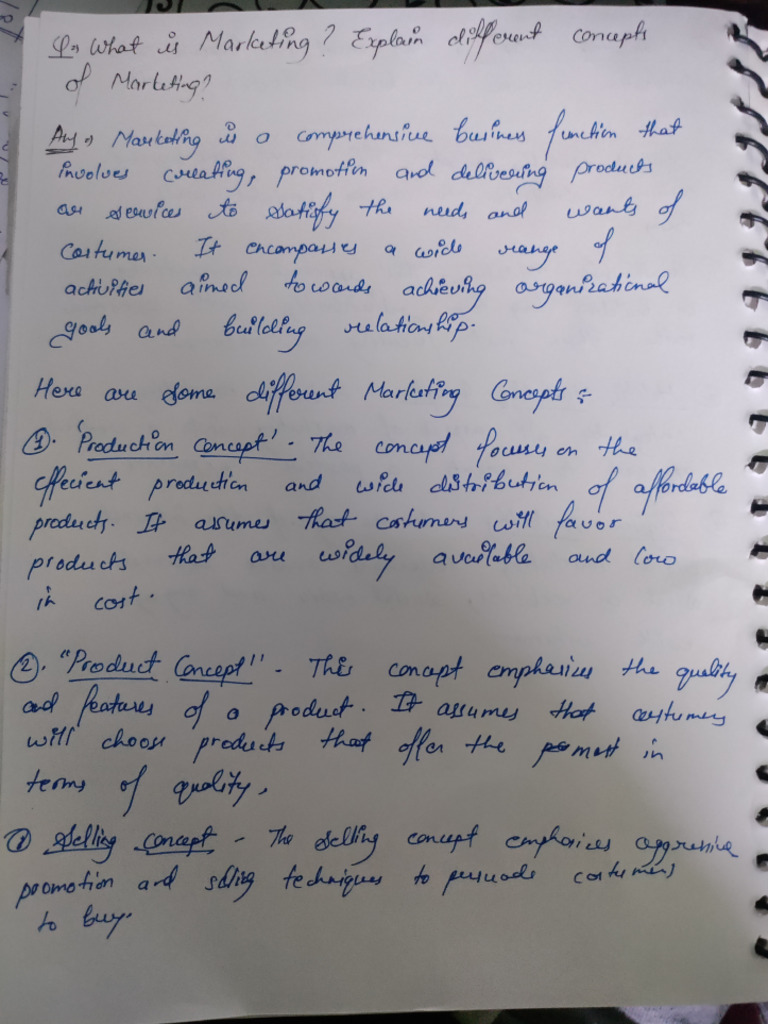 Q→ What is Marketing? Explain different concepts
of Marketing?
Ans→ Marketing is a comprehensive business function that
involves creating, promotion and delivering products
or services to satisfy the needs and wants of
costumer. It encompasses a wide range of
activities aimed towards achieving organizational
goals and building relationship.
Here are some different Marketing Concepts :-
①. 'Production Concept' - The concept focuses on the
effecient production and wide distribution of affordable
products. It assumes that costumers will favor
products that are widely available and low
in cost.
②. "Product Concept" - This concept emphasizes the quality
and features of a product. It assumes that costumers
will choose products that offer the most in
terms of quality,
Selling Concept - The selling concept emphasizes aggressive
promotion and selling techniques to persuade costumers
to buy.